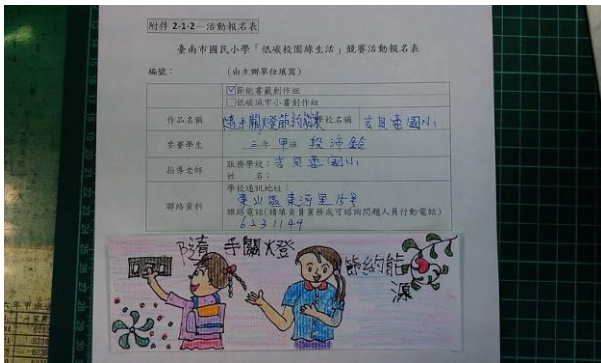 附件 2-1-2－活動報名表
臺南市國民小學「低碳校園綠生活」競賽活動報名表
編號： （由主辦單位填寫）
☑節能書籤創作組
□低碳城市小書創作組
作品名稱 隨手關燈節約能源 學校名稱 吉貝耍國小
參賽學生 三年 甲班 段沛鈴
指導老師 服務學校：吉貝耍國小
姓 名：
聯絡資料 學校通訊地址：
東山區東河里15號
聯絡電話(請填負責業務或可諮詢問題人員行動電話)
6231149
隨手關燈
節約能
源